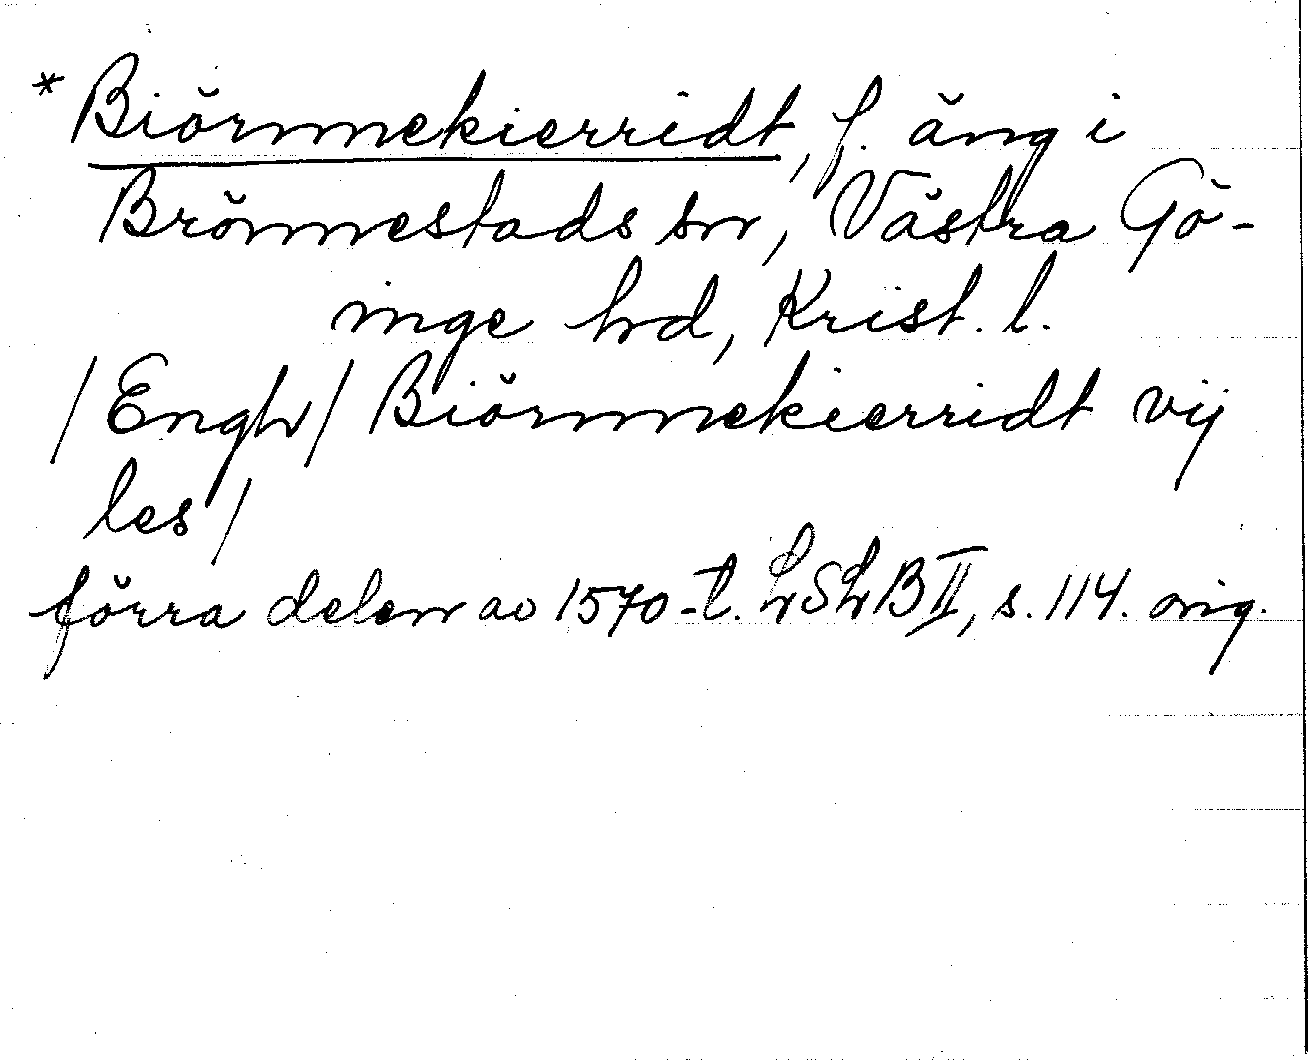 *Biörnnekierridt, f. äng i
Brönnestads sn, Västra Gö-
inge hd, Krist. l.
/Engh/ Biörnnekierridt vij
les/
förra delen av 1570-t. LSLB II, s. 114. orig.